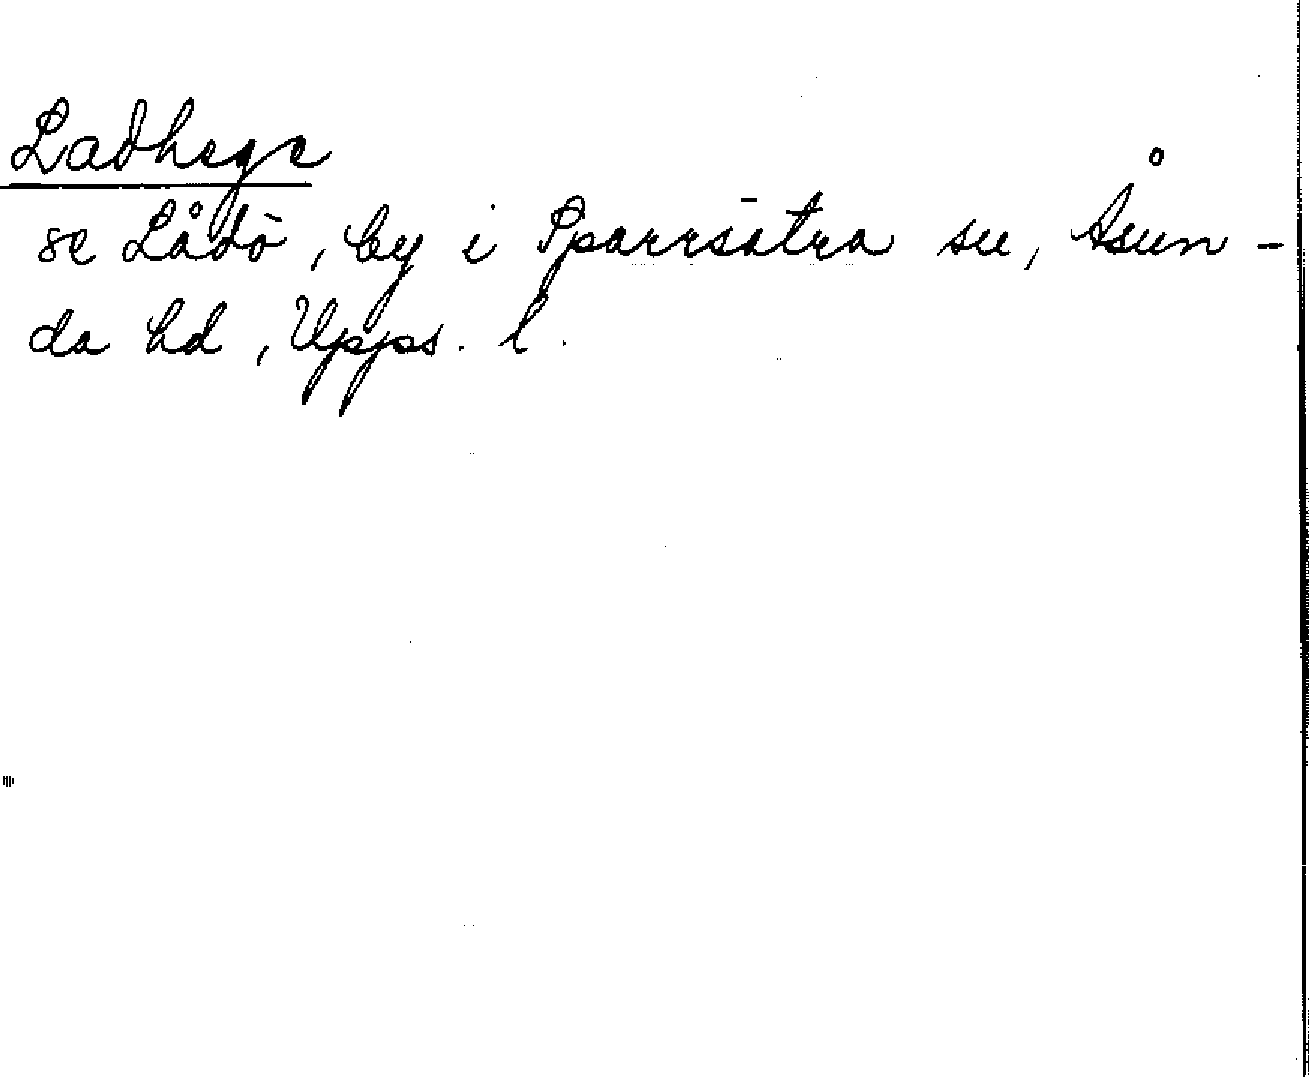 Ladhege
se Lådö, by i Sparrsätra sn, Åsun-
da hd, Upps. l.